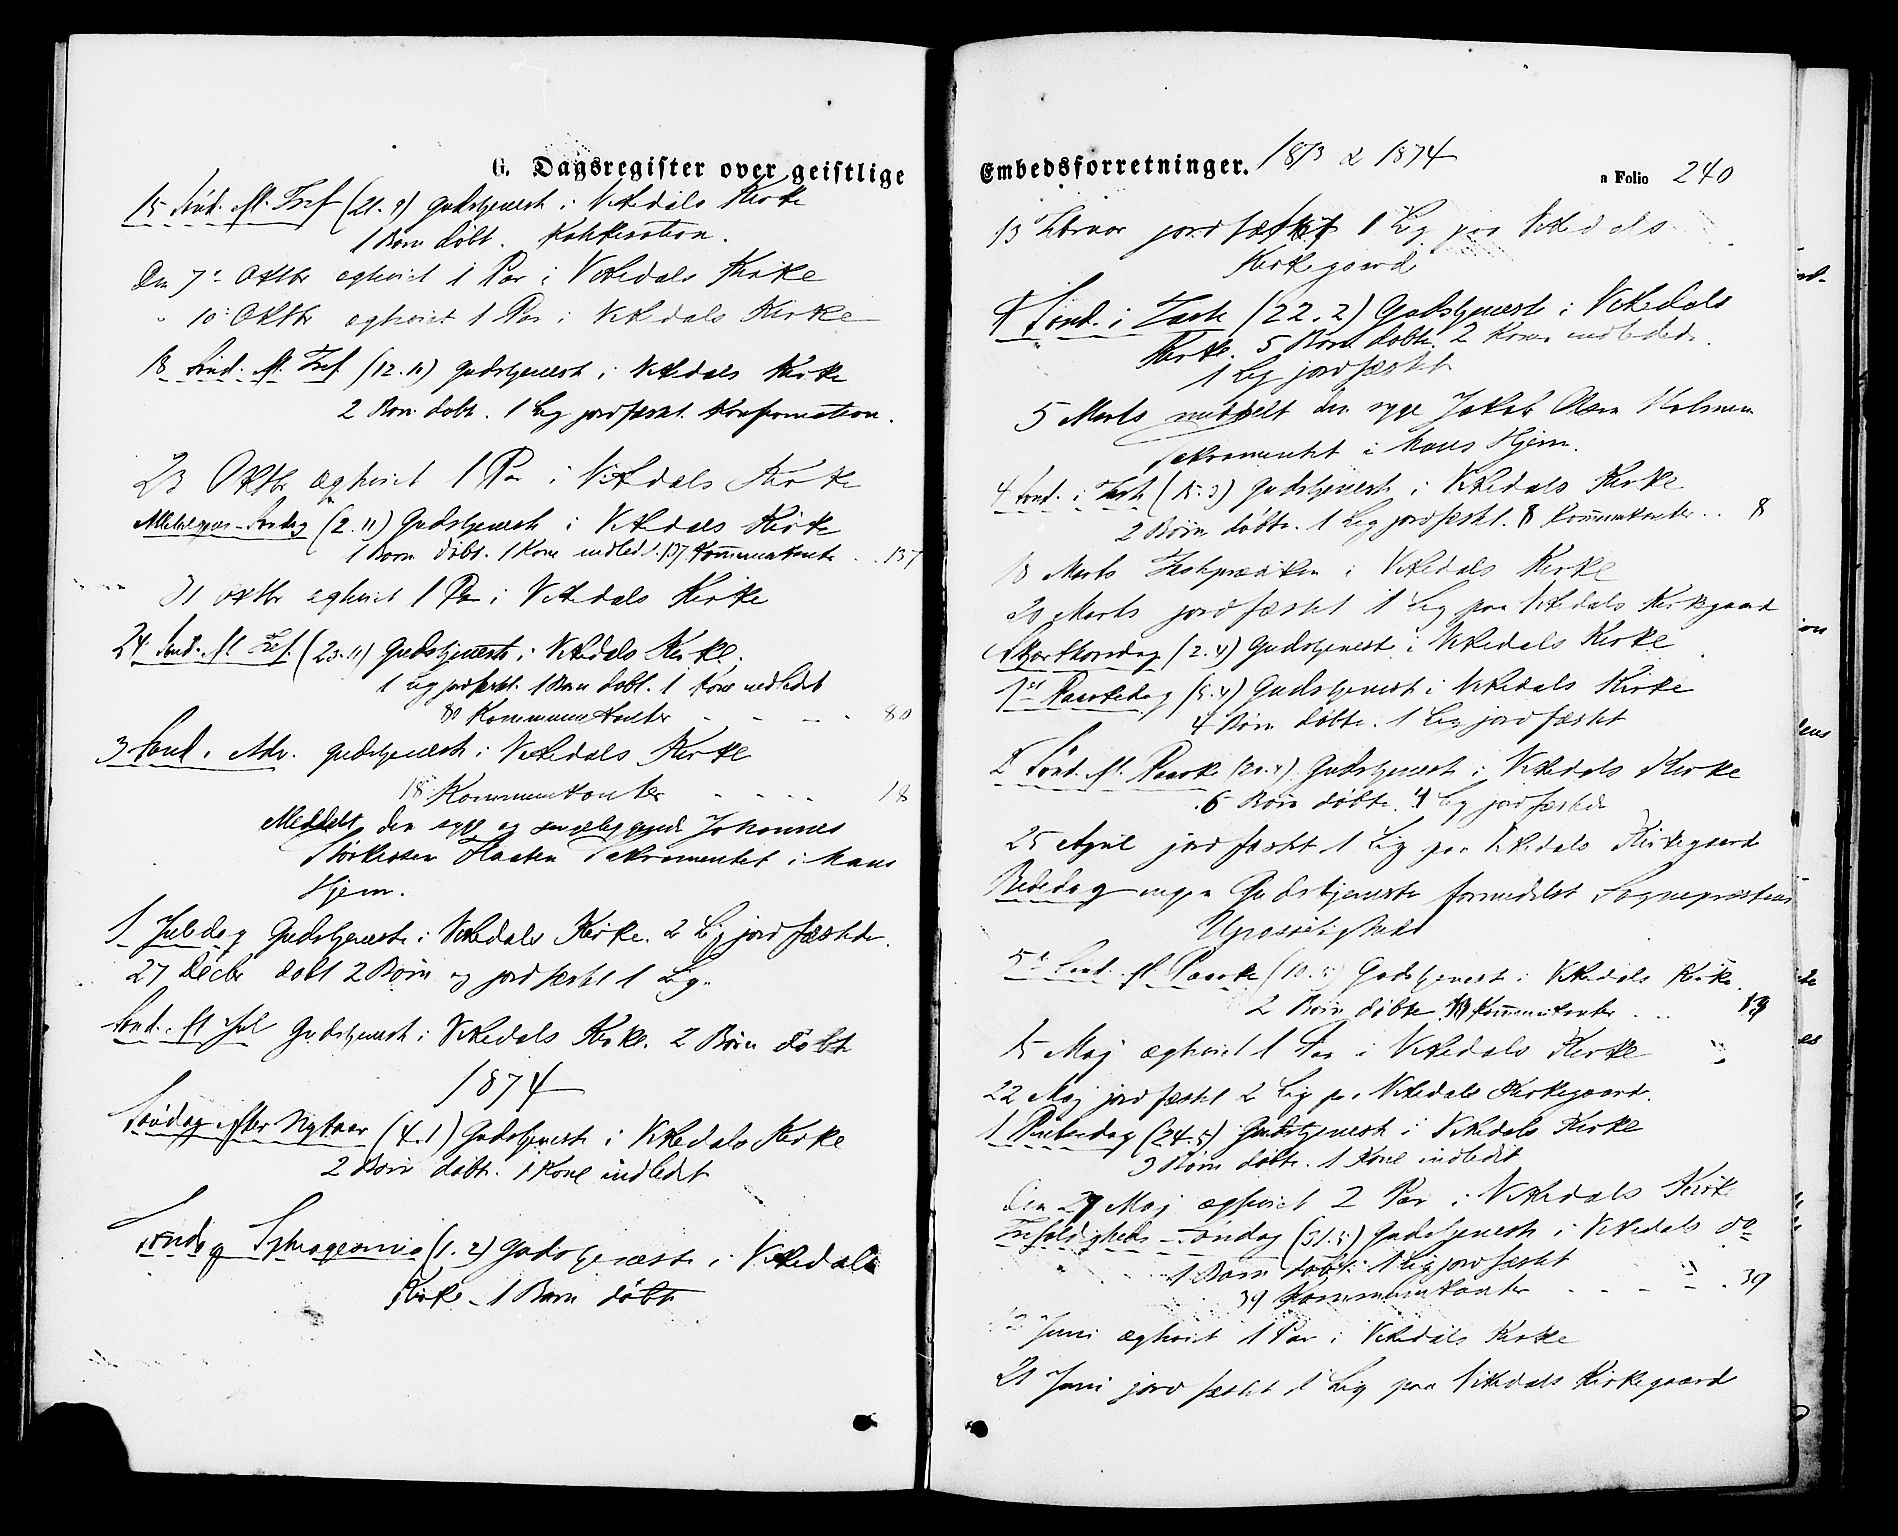 G. Dagsregister over geistlige
15 Sönd. ft. Tref (21. 9) Gudstjeneste i Vikedals Kirke
1 Barn döbt. Katekisation.
Den 7de Oktbr egteviet 1 Par i Vikedals Kirke
" 10 Oktbr egteviet 1 Par i Vikedals Kirke
18 Sönd. ft. Tref (12. 10) Gudstjeneste i Vikedals Kirke
2 Börn döbt. 1 Lig jordfæstet. Konfirmation.
23 Oktbr ægteviet 1 Par i Vikedals Kirke
Allehelgens-Söndag (2. 11) Gudstjeneste i Vikedals Kirke
1 Barn döbt. 1 Kone indled. 137 Kommunikanter . . 137
31 Oktbr egteviet 1 Par i Vikedals Kirke
24 Sönd. ft. Tref. (23. 11) Gudstjeneste i Vikedals Kirke.
1 Lig jordfæstet. 1 Barn döbt. 1 Kone indledet
80 Kommunikanter - - - - 80
3 Sönd. i Adv. Gudstjeneste i Vikedals Kirke
18 Kommunikanter - - - - 18
Meddelt den syge og sengeliggende Johannes
Haaten Sakramentet i hans
Hjem.
1. Juledag Gudstjeneste i Vikedals Kirke. 2 Lig jordfæstede.
27 Decbr döbt 2 Börn og jordfæstet 1 Lig.
Sönd. ft. Jul Gudstjeneste i Vikedals Kirke. 2 Börn döbt
1874
Söndag efter Nytaar (4. 1) Gudstjeneste i Vikedals Kirke
2 Börn döbt. 1 Kone indledet
Söndag Septuagesima (1. 2) Gudstjeneste i Vikedals
Kirke - 1 Barn döbt
Embedsforretninger. 1873 & 1874
a Folio 240
13 Februar jordfæstet 1 Lig paa Vikedals
Kirkegaard
1 Sönd. i Faste (22. 2) Gudstjeneste i Vikedals
Kirke. 5 Börn döbte. 2 Koner indledede.
1 Lig jordfæstet
5 Marts meddelt den syge Jakob Olsen Holmen
Sakramentet i hans Hjem.
4 Sönd. i Faste (15. 3) Gudstjeneste i Vikedals Kirke
2 Börn döbte. 1 Lig jordfæstet. 8 Kommunikanter . . 8
18 Marts Fasteprædiken i Vikedals Kirke
20 Marts jordfæstet 1 Lig paa Vikedals Kirkegaard
Skjærthorsdag (2. 4) Gudstjeneste i Vikedals Kirke
1ste Paaskedag (5. 4) Gudstjeneste i Vikedals Kirke
4 Börn döbte. 1 Lig jordfæstet
2 Sönd. ft. Paaske (20. 4) Gudstjeneste i Vikedals Kirke
6 Börn döbte. 4 Lig jordfæstede
25 April jordfæstet 1 Lig paa Vikedals Kirkegaard
Bededag ingen Gudstjeneste formedelst Sognepræstens
Upasselighed
5te Sönd. ft. Paaske (10. 5) Gudstjeneste i Vikedals Kirke.
2 Börn döbte. 19 Kommunikanter . . . 19
15 Maj ægteviet 1 Par i Vikedals Kirke
22 Maj jordfæstet 2 Lig paa Vikedals Kirkegaard.
1 Pintsedag (24. 5) Gudstjeneste i Vikedals Kirke
3 Börn döbte. 1 Kone indledet
Den 27 Maj ægteviet 2 Par i Vikedals Kirke
Trefoldigheds-Söndag (31. 5) Gudstjeneste i Vikedals do
1 Barn döbt. 1 Lig jordfæstet
39 Kommunikanter - - - - . 39
Juni ægteviet 1 Par i Vikedals Kirke
21 Juni jordfæstet 1 Lig paa Vikedals Kirkegaard